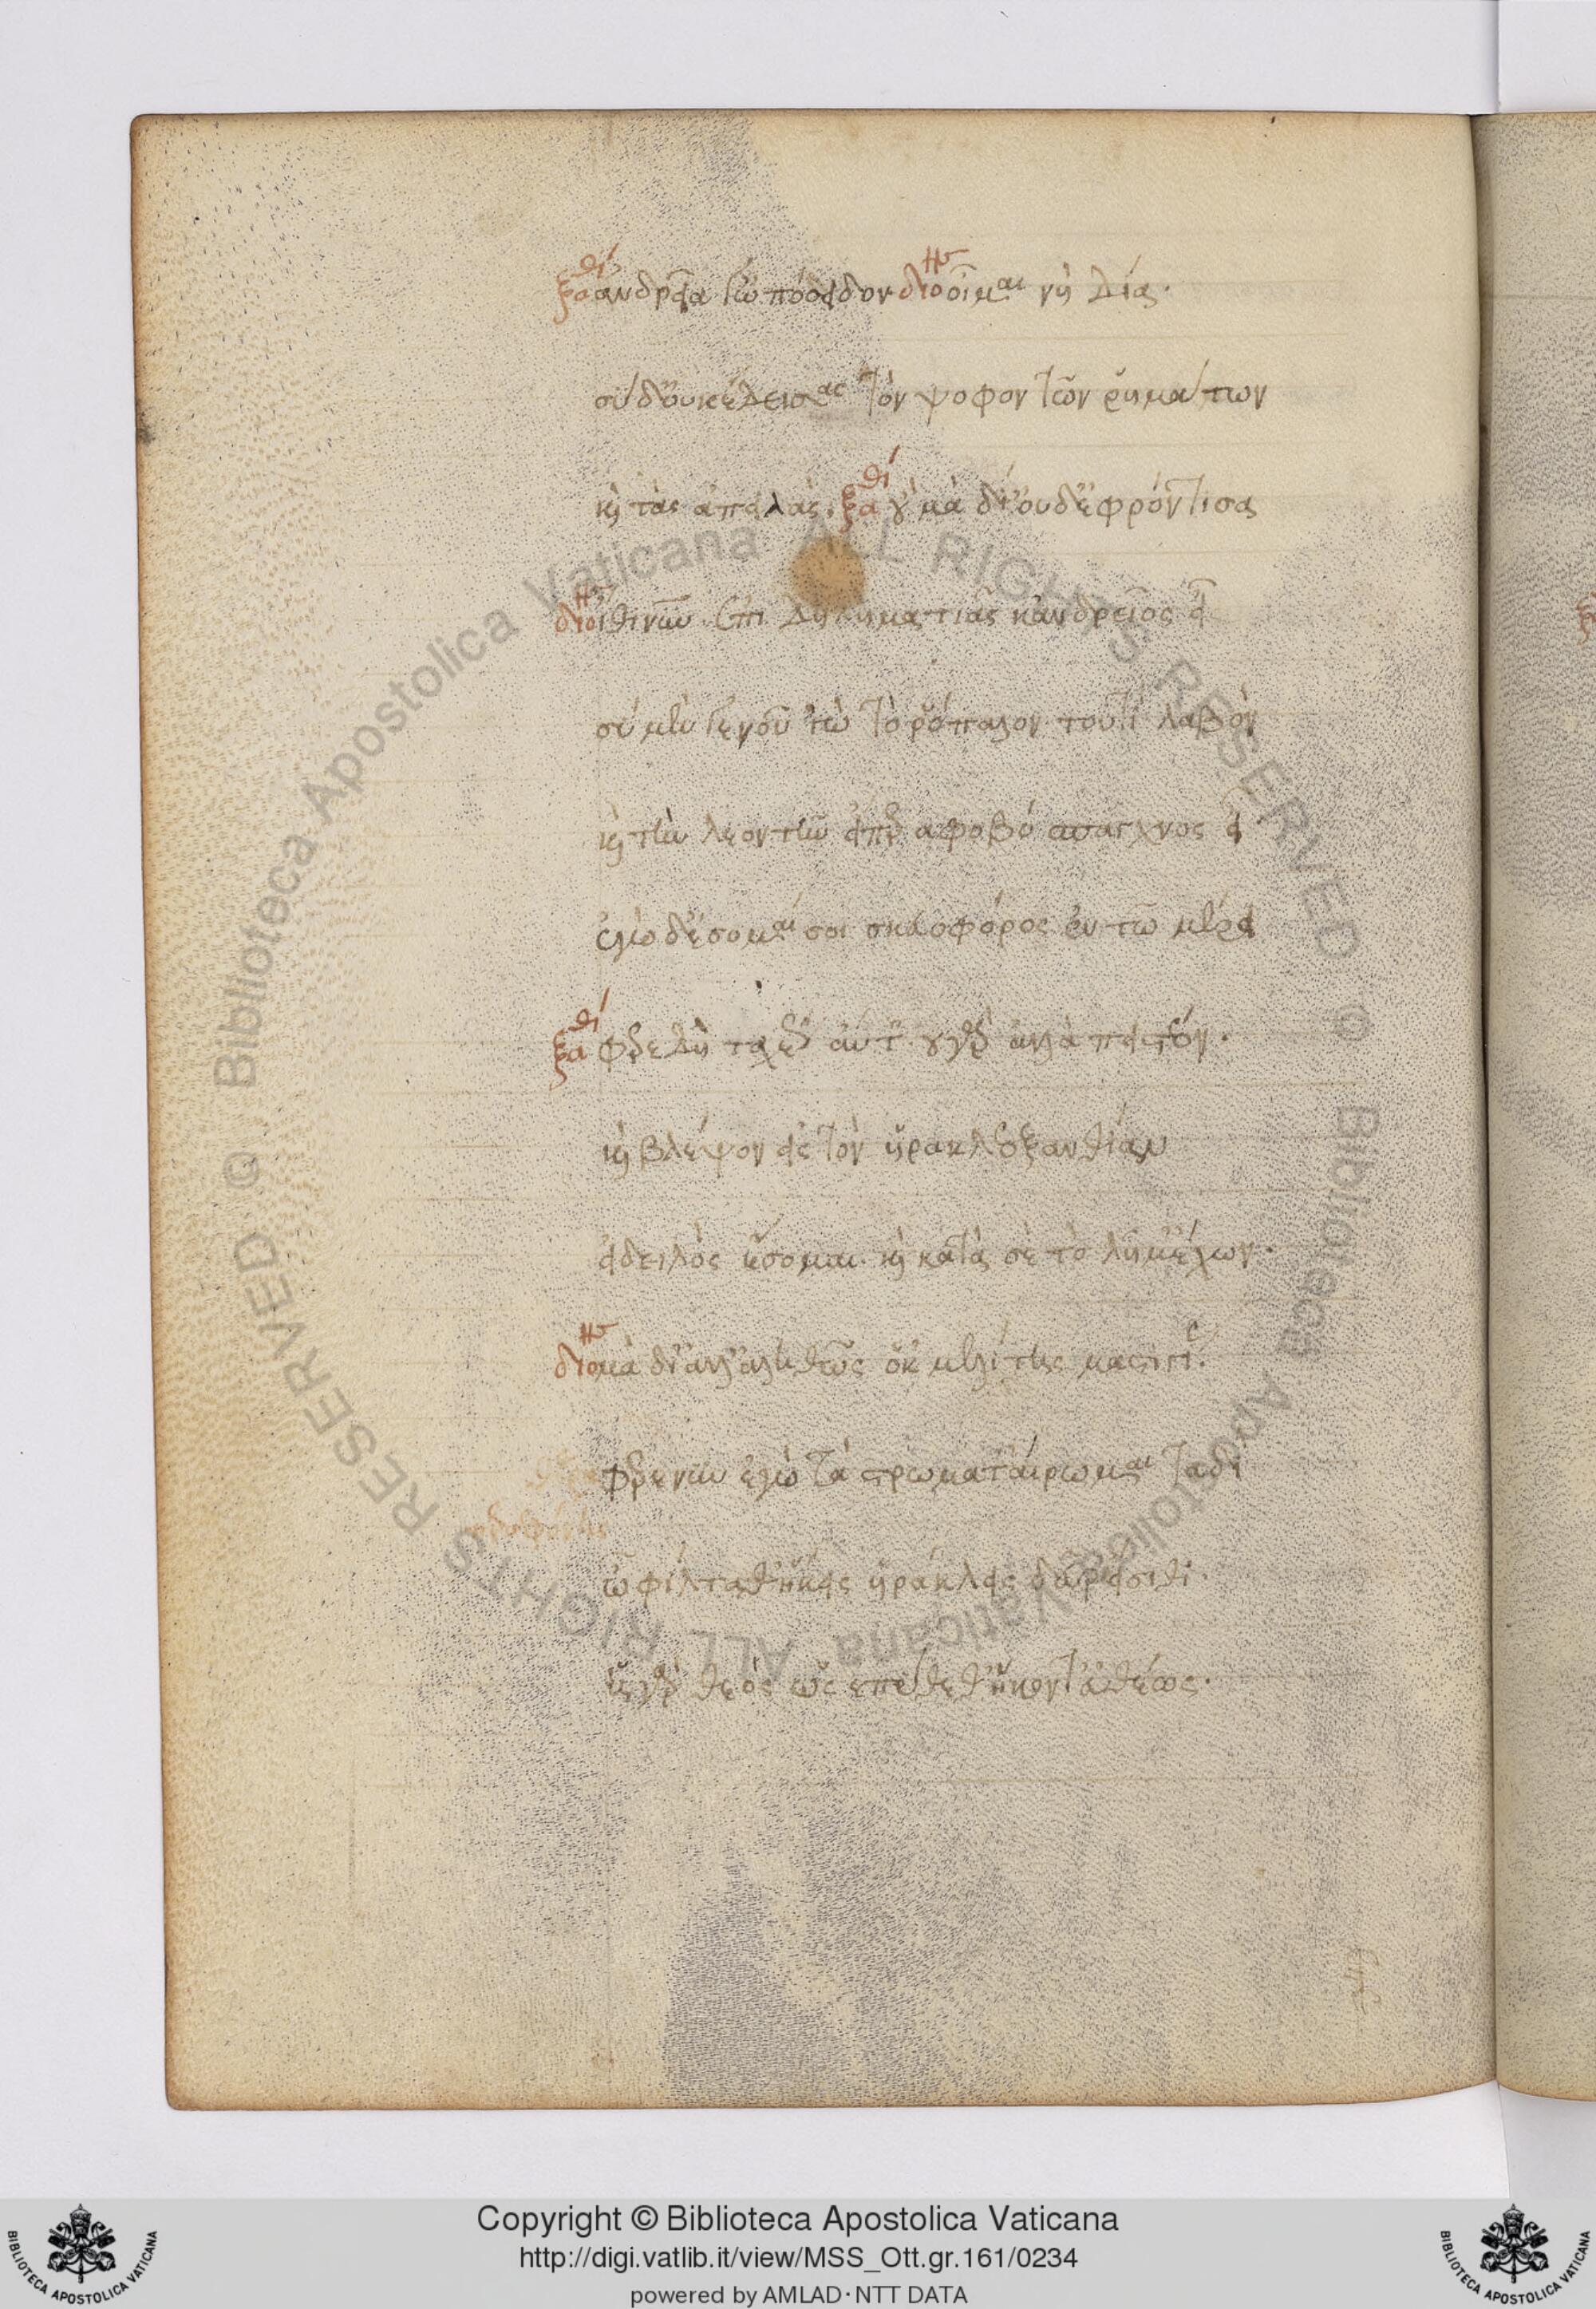 ξαθί ἀνδρεῖα τῷ ποσείδον διονυ οἶμαι νὴ δία.
σὺ δ' οὐκ ἔδεισας τὸν ψόφον τῶν ῥημάτων
καὶ τὰς ἀπειλάς. ξαθί οὐ μὰ δί' οὐδ' ἐφρόντισα
διονυ ἴθι νῦν ληματιᾶς κἀνδρεῖος εἶ
σὺ μὲν γενοῦ 'γὼ τὸ ῥόπαλον τουτὶ λαβὼν
καὶ τὴν λεοντῆν εἴπερ ἀφοβόσπλαγχνος εἶ
ἐγὼ δ' ἔσομαί σοι σκευοφόρος ἐν τῷ μέρει
ξαθί φέρε δὴ ταχέως αὔτ' οὐ γὰρ ἀλλὰ πειστέον.
καὶ βλέψον εἰς τὸν ἡρακλειοξανθίαν
εἰ δειλὸς ἔσομαι. καὶ κατὰ σὲ τὸ λῆμ' ἔχων.
διονυ μὰ δί' ἀλλ' ἀληθῶς οὑκ μελίτης μαστιγίας.
φέρε νυν ἐγὼ τὰ στρώματ' αἴρωμαι ταδί
ὦ φίλταθ' ἥκεις ἡράκλεις δεῦρ' εἴσιθι.
ἡ γὰρ θεὸς ὡς ἐπύθεθ' ἥκοντ' εὐθέως.
Copyright © Biblioteca Apostolica Vaticana
http://digi.vatlib.it/view/MSS_Ott.gr.161/0234
powered by AMLAD·NTT DATA
BIBLIOTECA APOSTOLICA VATICANA
BIBLIOTECA APOSTOLICA VATICANA
© Biblioteca Apostolica Vaticana ALL RIGHTS RESERVED
© Biblioteca Apostolica Vaticana ALL RIGHTS RESERVED